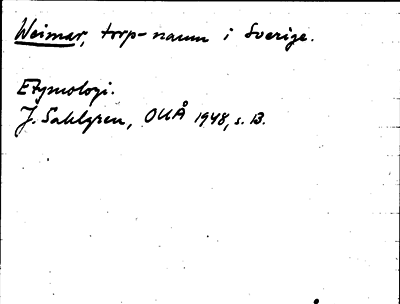 Weimar, torp-namn i Sverige.
Etymologi.
J. Sahlgren, OUÅ 1948, s. 13.